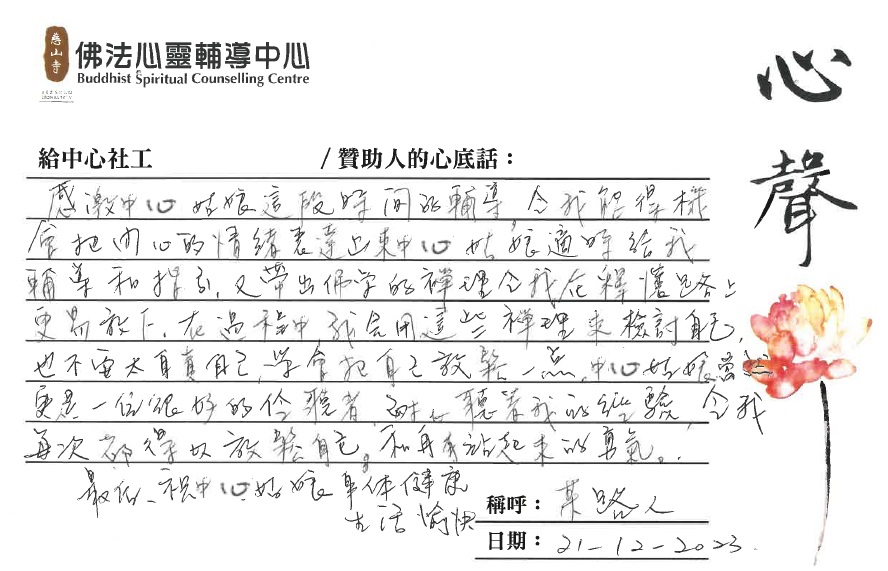 慈山寺
佛法心靈輔導中心
Buddhist Spiritual Counselling Centre
心聲
給中心社工 /贊助人的心底話：
感激中心姑娘這段時间的輔導,令我能得機
會把内心的情緒表達出來中心姑娘適時給我
輔導和指引,又帶出佛学的禅理令我在釋懷路上
更易放下,在過程中我会用這些禅理來檢討自己,
也不要太自責自己,学會把自己放鬆一点,中心姑娘
更是一位很好的伶聽者,耐心聽着我的經驗,令我
每次都得以放鬆自己。和再有站起來的勇氣。
最後,祝中心姑娘身体健康
生活愉快
稱呼：某路人
日期：21-12-2023.